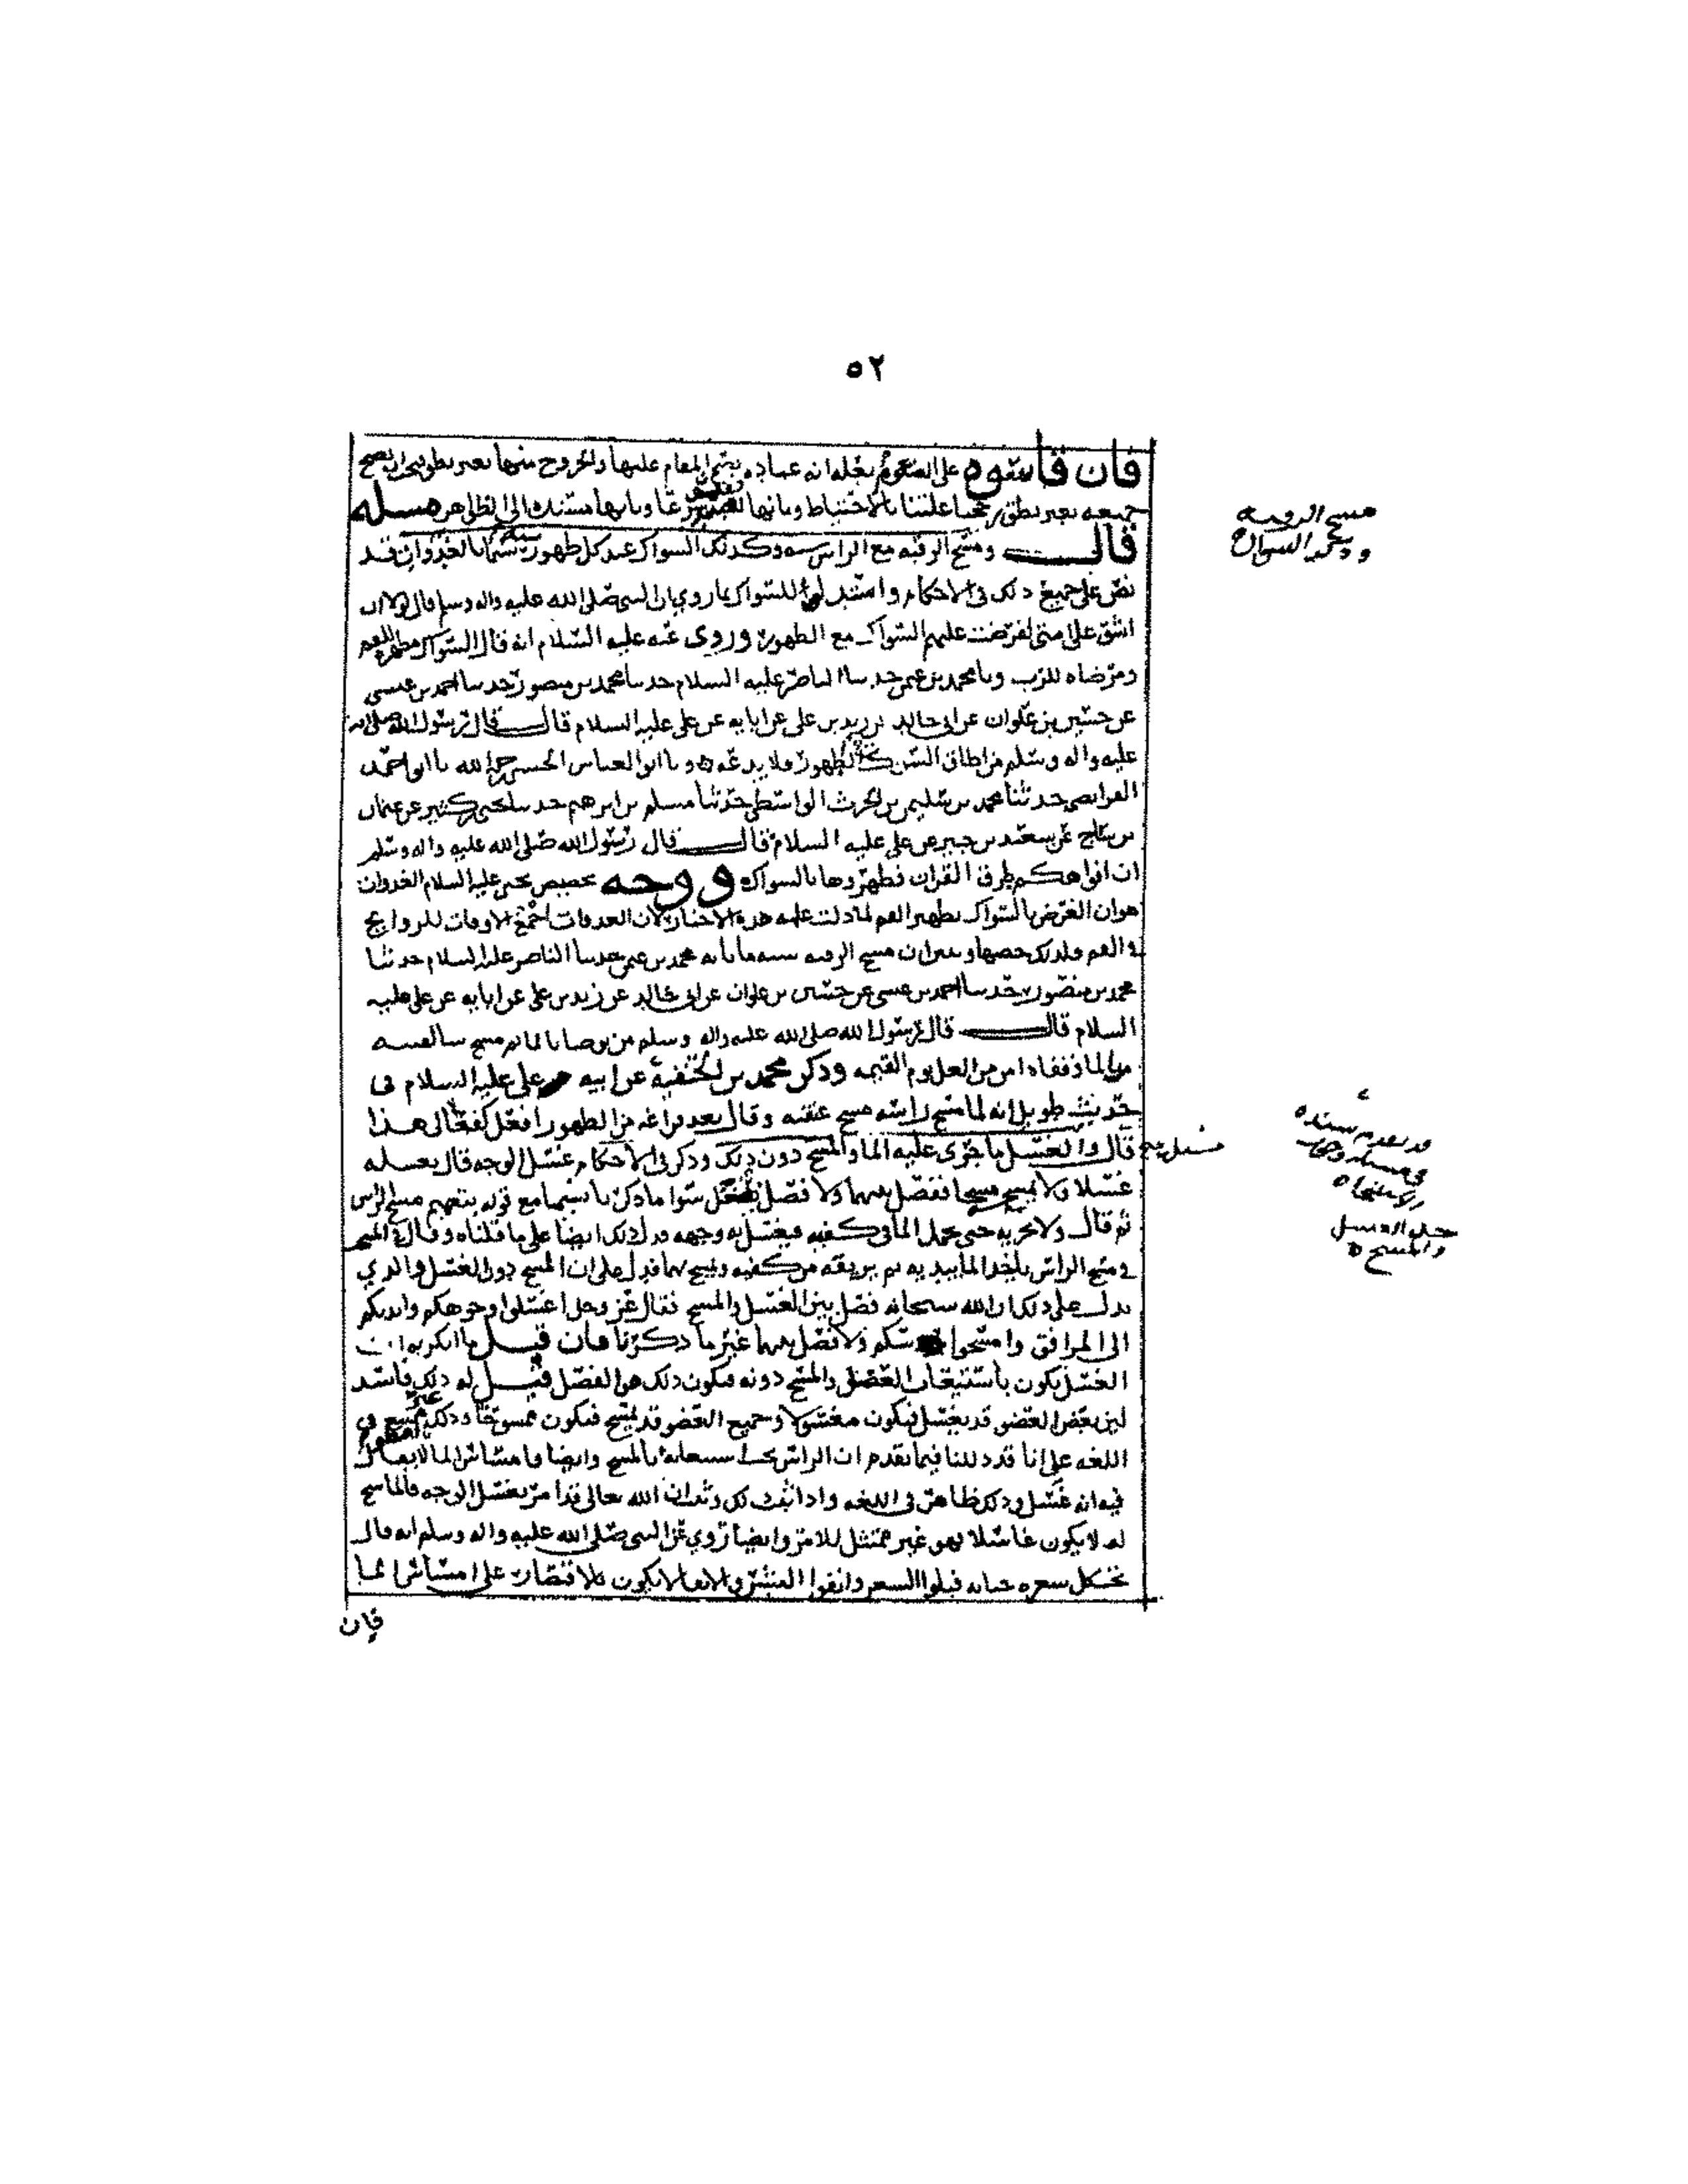 ٥٢
فان قاسوه على الصوم بعلة انه عبادة يتم المقام عليها والخروج منها بغير نطق فيجب ان يصح
جميعه بغير نطق رجحنا علتنا بالاحتياط وبانها شرعا وبانها مستندة الى الظاهر مسله
قال ومسح الرقبة مع الراس سنة وكذلك السواك عند كل طهور سيما بالغدوات قد
نص على جميع ذلك في الاحكام واستدل للسواك بما روي ان النبي صلى الله عليه واله وسلم قال لولا ان
اشق على امتي لفرضت عليهم السواك مع الطهور وروى عنه عليه السلام انه قال السواك مطهرة للفم
ومرضاة للرب ونا محمد بن عثمن حدسا الناصر عليه السلام حدسا محمد بن منصور حدسا احمد بن عيسى
عن حسين بن علوان عن ابي خالد عن زيد بن علي عن ابايه عن علي عليه السلام قال قال رسول الله صلى الله
عليه واله وسلم من اطاق السواك مع الطهور فلا يدعه ونا ابو العباس الحسني رحمه الله نا ابو احمد
الفرايضي حدثنا محمد بن سليمن بن الحرث الواسطي حدثنا مسلم بن ابرهيم حدسا بحر بن كثير عن عثمان
بن ساج عن سعيد بن جبير عن علي عليه السلام قال قال رسول الله صلى الله عليه واله وسلم
ان افواهكم طرق القران فطهروها بالسواك ووجه تخصيص يحيى عليه السلام الغدوات
هو ان الغرض بالسواك تطهير الفم لما دلت عليه هذه الاخبار ولان الغدوات اجمع الاوقات للروايح
في الفم ولذلك خصها وبين ان مسح الرقبة سنة ما نا به محمد بن عثمن حدسا الناصر عليه السلام حدثنا
محمد بن منصور حدسا احمد بن عيسى عن حسين بن علوان عن ابي خالد عن زيد بن علي عن ابايه عن علي عليه
السلام قال قال رسول الله صلى الله عليه واله وسلم من توضا ثم مسح سالفتيه
من الما وقفاه امن من الغل يوم القيمه وذكر محمد بن الحنفية عن ابيه علي عليه السلام في
حديث طويل انه لما مسح راسه مسح عنقه وقال بعد فراغه من الطهور افعل كفعالى هذا
قال والغسل ما جرى عليه الما والمسح دون ذلك وذكر في الاحكام غسل الوجه قال يغسله
غسلا ولا يمسح مسحا ففصل بينهما ولا فصل سوا ما ذكر ناسيما مع قوله بتعميم مسح الراس
ثم قال ولا يجزيه حتى يحمل الما في كفيه فيغسل به وجهه فدل ذلك ايضا على ما قلناه وقال في المسح
في مسح الراس ياخذ الما بيديه ثم يريقه من كفيه ويمسح بهما فدل على ان المسح دون الغسل والذي
يدل على ذلك ان الله سبحانه فصل بين الغسل والمسح فقال عز وجل اغسلوا وجوهكم وايديكم
الى المرافق وامسحوا برؤسكم ولا فصل بينهما غير ما ذكرنا فان قيل ما انكرتم ان
الغسل يكون باستيعاب العضو والمسح دونه فيكون ذلك هو الفصل قيل له ذلك فاسد
لان بعض العضو قد يغسل فيكون مغسولا وجميع العضو قد يمسح فيكون ممسوحا وذلك غير ممتنع في
اللغه على انا قد دللنا فيما تقدم ان الراس يجب استيعابه بالمسح وايضا فامساس الما لا يقال
فيه انه غسل وذلك ظاهر في اللغه واذا ثبت ذلك وثبت ان الله تعالى قد امر بغسل الوجه فالماسح
له لا يكون غاسلا فهو غير ممتثل للامر وايضا روي عن النبي صلى الله عليه واله وسلم انه قال
تحت كل شعره جنابه فبلوا الشعر وانقوا البشر والانقا لا يكون بالاقتصار على امساس الما
فان
مسح الرقبة
وحكم السواك
قد تقدم سنده
في مسله وجوب
الاستنجاه
حد الغسل
والمسح ه